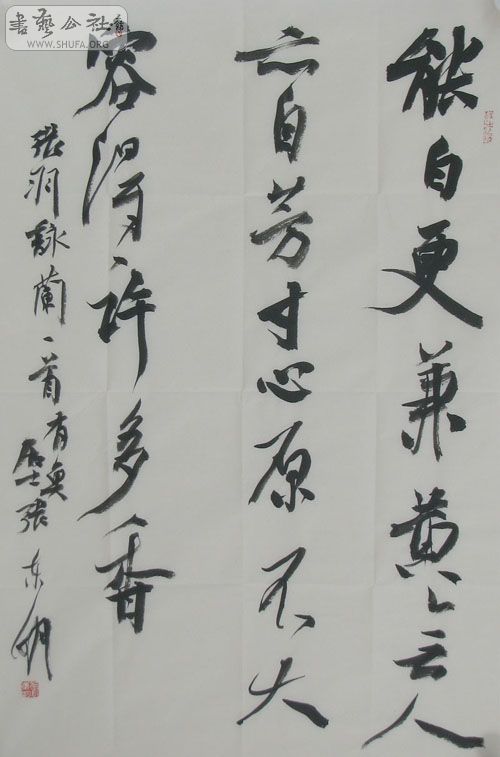 書藝公社
WWW.SHUFA.ORG
能白更兼黄无人
亦自芳寸心原不大
容得許多香
張羽詠蘭一首有奂居士張东明